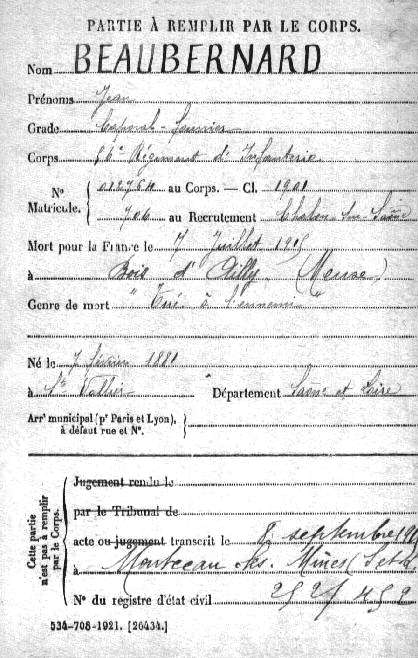 PARTIE À REMPLIR PAR LE CORPS.
Nom BEAUBERNARD
Prénoms Jean
Grade Caporal-Fourrier
Corps Régiment d'Infanterie
N° Matricule. { 012754 au Corps. — Cl. 1901
706 au Recrutement Chalon sur Saône
Mort pour la France le 7 Juillet 1915
à Bois d'Ailly (Meuse)
Genre de mort "Tué à l'ennemi"
Né le 7 février 1881
à St Vallier Département Saône et Loire
Arrt municipal (pr Paris et Lyon),
à défaut rue et N°.
Cette partie n'est pas à remplir par le Corps.
Jugement rendu le
par le Tribunal de
acte ou jugement transcrit le 8 septembre
à Montceau les Mines
N° du registre d'état civil
534-708-1921. [26434.]